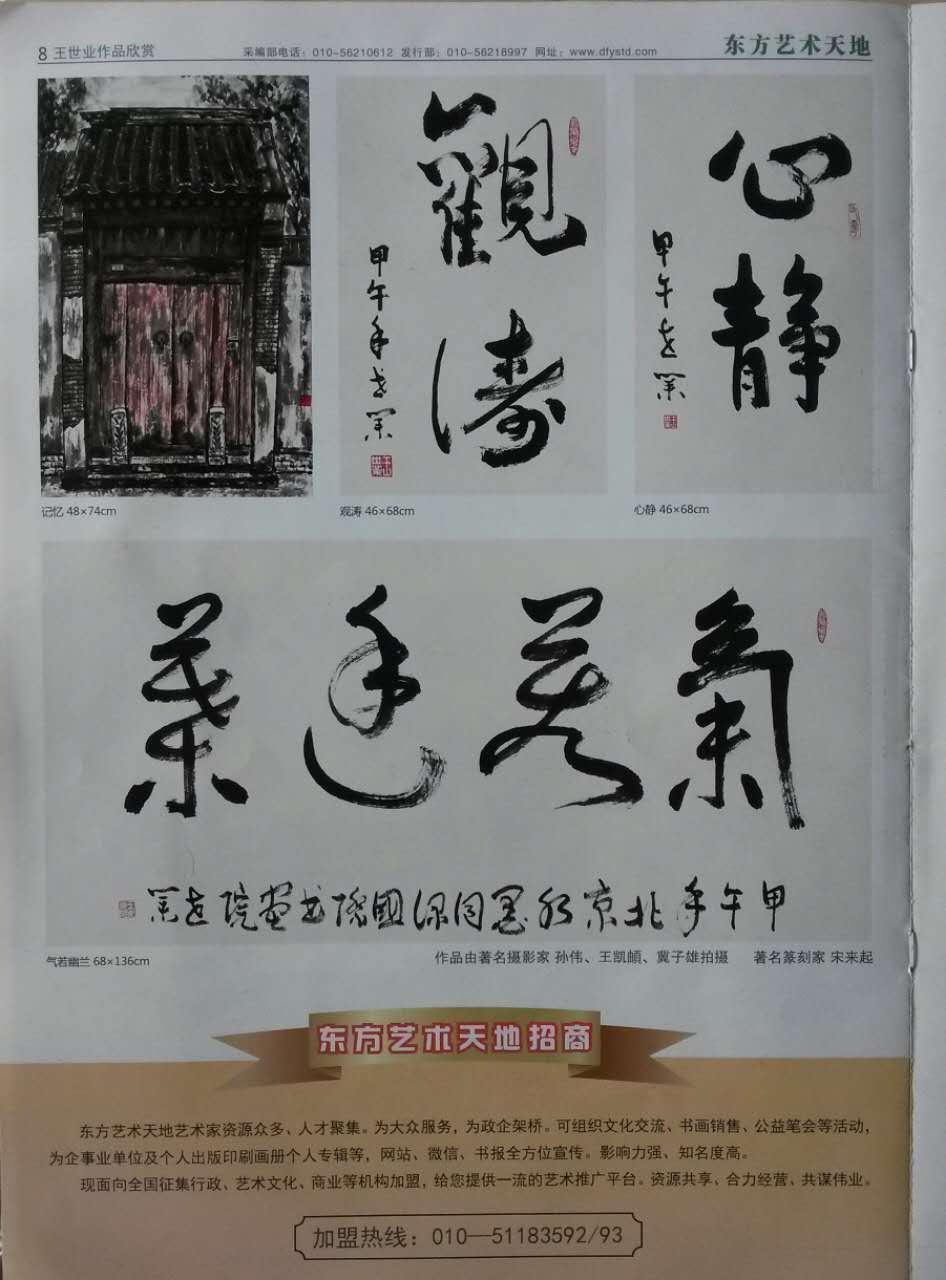 8 王世业作品欣赏
采编部电话：010-56210612 发行部：010-56218997 网址：www.dfystd.com
东方艺术天地
觀濤
甲午年世業
心静
甲午世業
记忆 48×74cm
观涛 46×68cm
心静 46×68cm
氣若
甲午年北京
國際书畫院世業
气若幽兰 68×136cm
作品由著名摄影家 孙伟、王凯頔、冀子雄拍摄 著名篆刻家 宋来起
东方艺术天地招商
东方艺术天地艺术家资源众多、人才聚集。为大众服务，为政企架桥。可组织文化交流、书画销售、公益笔会等活动，
为企事业单位及个人出版印刷画册个人专辑等，网站、微信、书报全方位宣传。影响力强、知名度高。
现面向全国征集行政、艺术文化、商业等机构加盟，给您提供一流的艺术推广平台。资源共享、合力经营、共谋伟业。
加盟热线：010—51183592/93